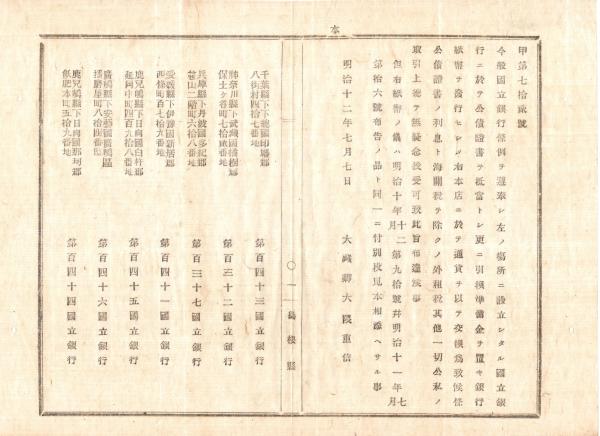 本
甲第七拾貳號
今般國立銀行條例ヲ遵奉シ左ノ場所ニ設立シタル國立銀
行ニ於テ公債證書ヲ抵當トシ更ニ引換準備金ヲ置キ銀行
紙幣ヲ發行セシメ右本店ニ於テ通貨ヲ以テ交換爲致候條
公債證書ノ利息ト海關税ヲ除クノ外租税其他一切公私ノ
取引上總テ無疑念授受可致此旨布達候事
但右紙幣ノ儀ハ明治十年十二月第九拾號幷明治十一年七月
第拾六號布告ノ品ト同一ニ付別段見本相添ヘサル事
明治十二年七月七日
大藏卿大隈重信
〇一 島根縣
千葉縣下下總國印旛郡
八街村四拾七番地
第百四十三國立銀行
神奈川縣下武藏國橘樹郡
保土ケ谷町
第百三十二國立銀行
兵庫縣下丹波國多紀郡
二階町六拾八番地
第百三十七國立銀行
愛媛縣下伊豫國新居郡
西條町百五拾番地
第百四十一國立銀行
鹿兒嶋縣下日向國臼杵郡
岡中町四百九拾八番地
第百四十五國立銀行
廣嶋縣下安藝國廣嶋區
播磨屋町八拾四番地
第百四十六國立銀行
鹿兒嶋縣下日向國那珂郡
飫肥本町五拾九番地
第百四十四國立銀行